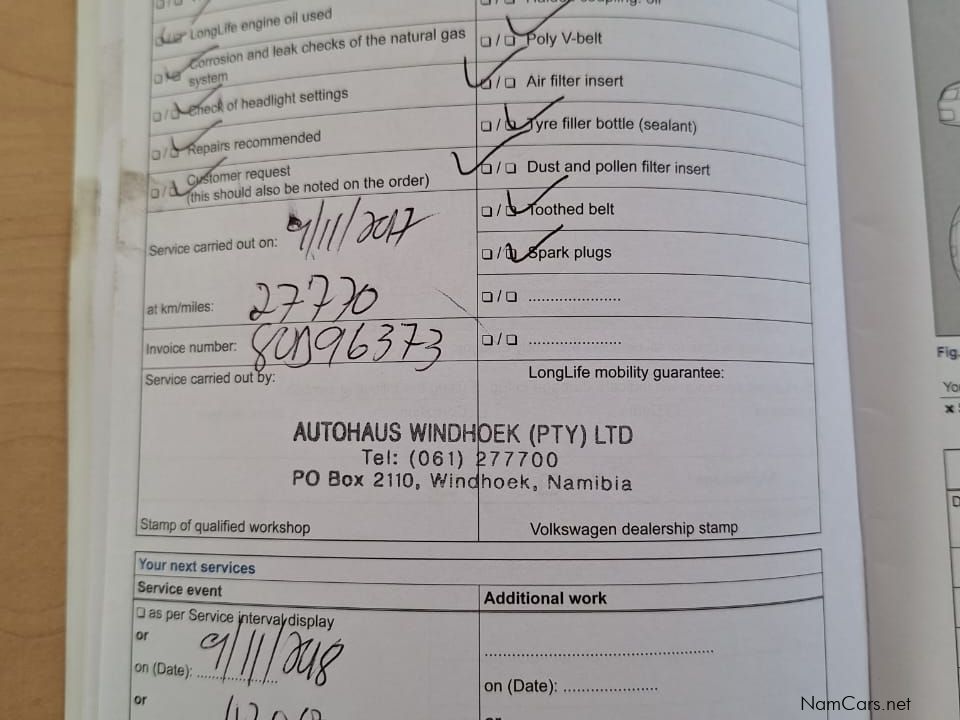 LongLife engine oil used
Corrosion and leak checks of the natural gas
system
Check of headlight settings
Repairs recommended
Customer request
(this should also be noted on the order)
Service carried out on: 9/11/2017
at km/miles: 27770
Invoice number:
Service carried out by:
Poly V-belt
Air filter insert
Tyre filler bottle (sealant)
Dust and pollen filter insert
Toothed belt
Spark plugs
.....................
.....................
LongLife mobility guarantee:
AUTOHAUS WINDHOEK (PTY) LTD
Tel: (061) 277700
PO Box 2110, Windhoek, Namibia
Stamp of qualified workshop
Volkswagen dealership stamp
Your next services
Service event
as per Service interval display
or
on (Date): 9/11/2018
or
Additional work
on (Date): .....................
Fig.
NamCars.net